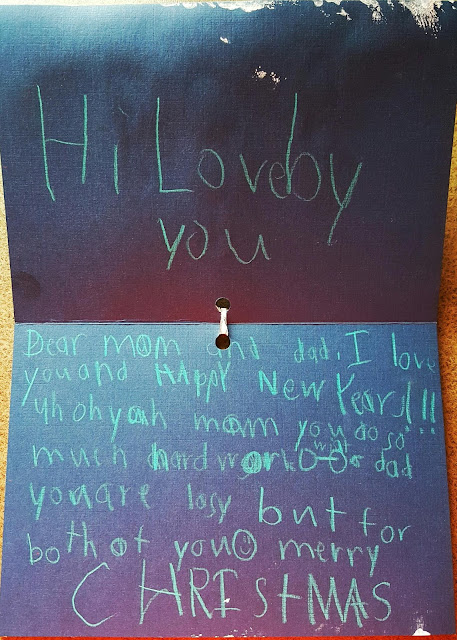 Hi Loveby
you
Dear mom and dad, I love
you and HAppy New Years!!!
uh oh yah mam you do so
much hard work dad
you are lasy but for
both of you merry
CHRIStMAS